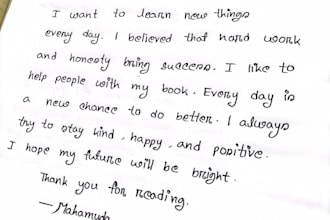 I want to learn new things
every day. I believed that hard work
and honesty bring success. I like to
help people with my book. Every day is
a new chance to do better. I always
try to stay kind, happy, and positive.
I hope my future will be bright.
Thank you for reading.
— Mahamuda